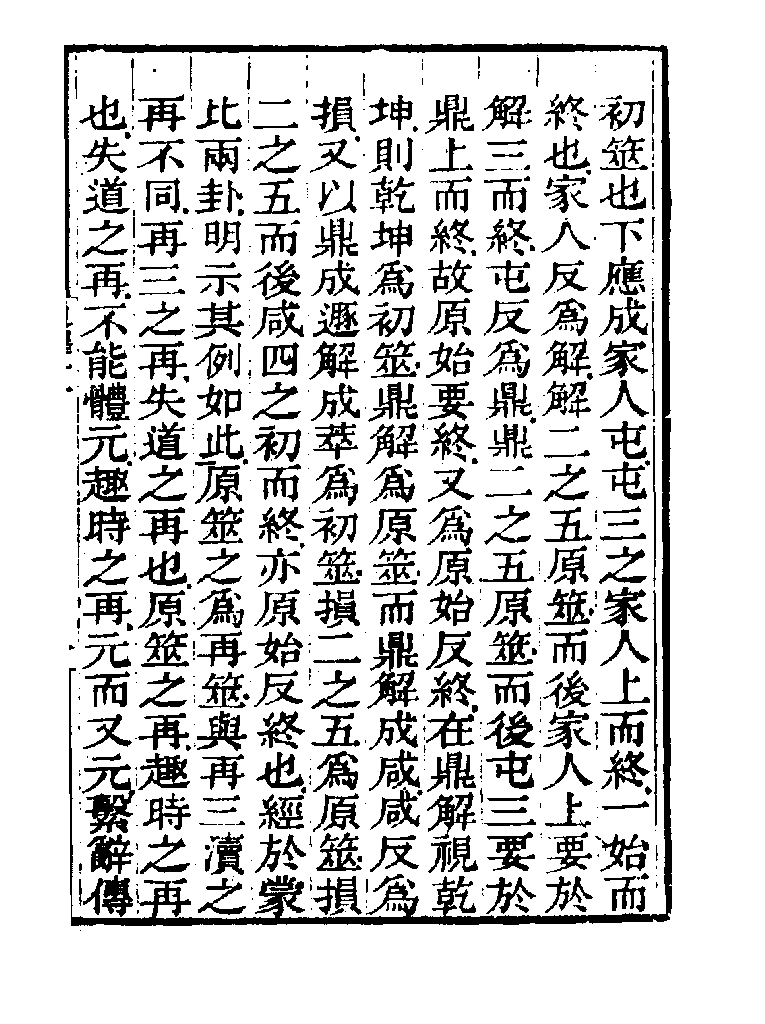 初筮也下應成家人屯屯三之家人上而終一始而
終也家人反爲解解二之五原筮而後家人上要於
解三而終屯反爲鼎鼎二之五原筮而後屯三要於
鼎上而終故原始要終又爲原始反終在鼎解視乾
坤則乾坤爲初筮鼎解爲原筮而鼎解成咸咸反爲
損又以鼎成遯解成萃爲初筮損二之五爲原筮損
二之五而後咸四之初而終亦原始反終也經於蒙
比兩卦明示其例如此原筮之爲再筮與再三瀆之
再不同再三之再失道之再也原筮之再趣時之再
也失道之再不能體元趣時之再元而又元繫辭傳